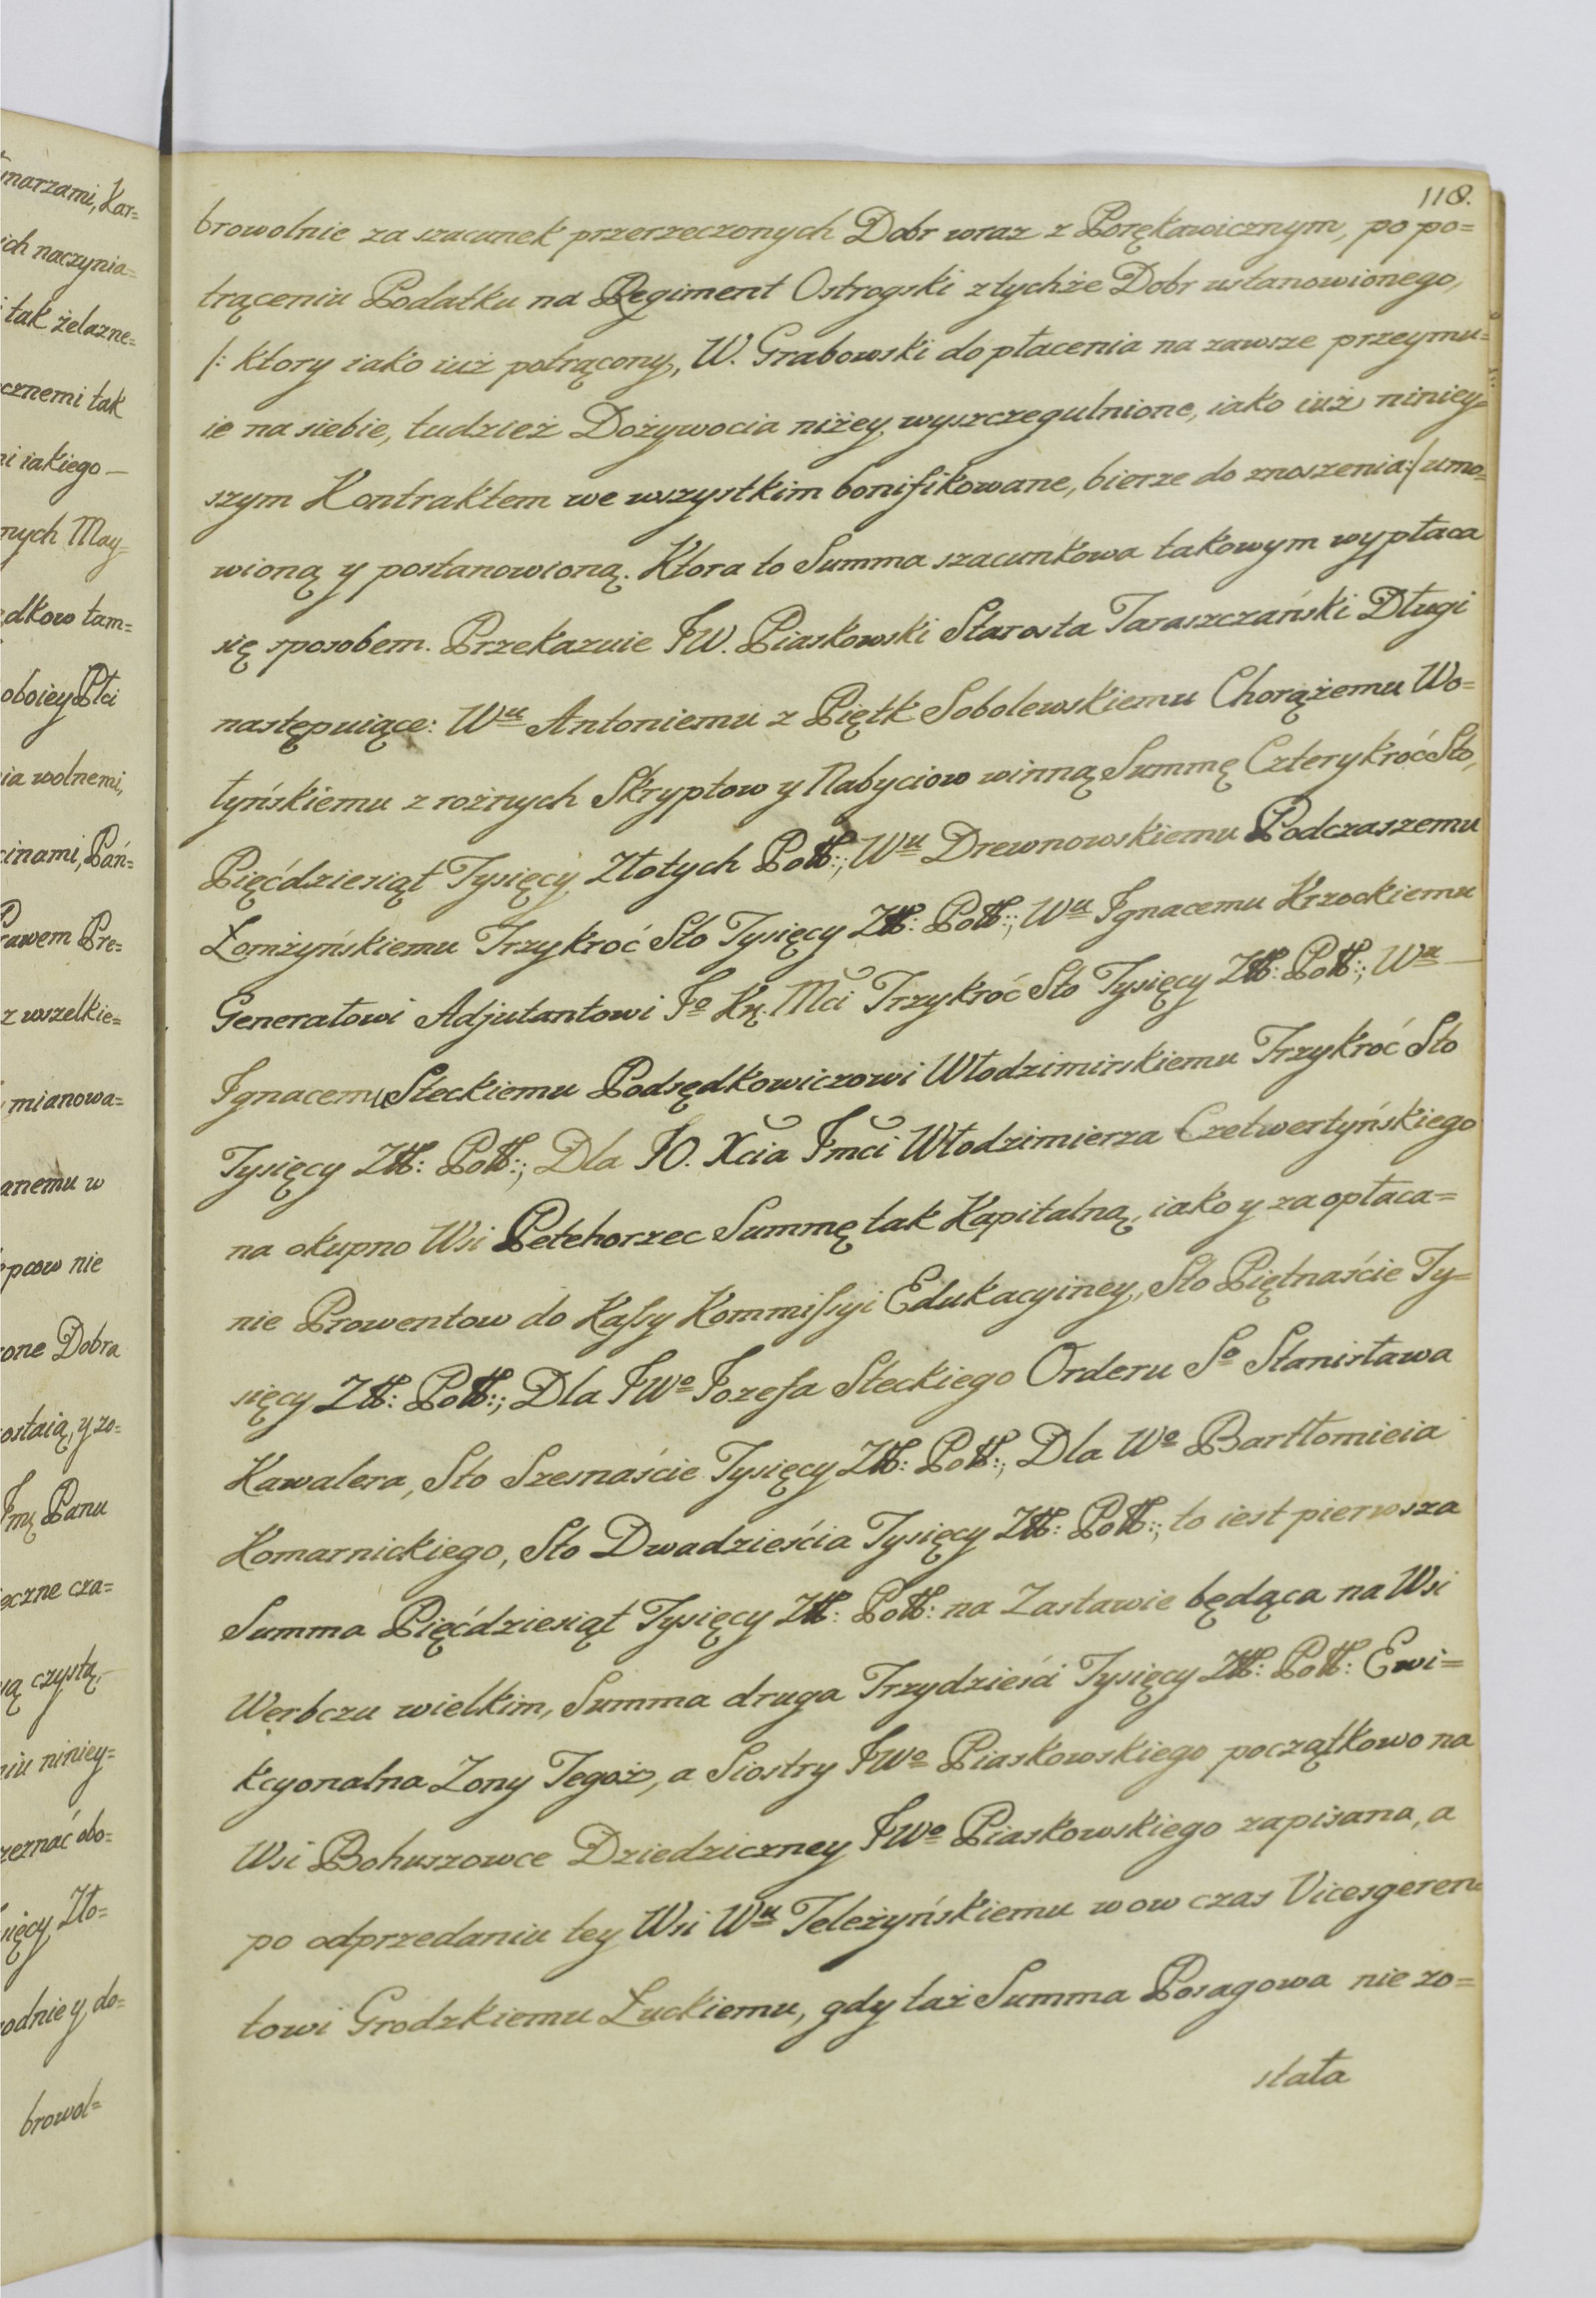 118.
browolnie za szacunek przerzeczonych Dobr wraz z Porękawicznym, po po=
trąceniu Podatku na Regiment Ostrogski z tychże Dobr ustanowionego,
/: ktory iako iuż potrącony, W. Grabowski do płacenia na zawsze przeymu=
ie na siebie, tudzież Dożywocia niżey wyszczegulnione, iako iuż niniey=
szym Kontraktem we wszystkim bonifikowane, bierze do znoszenia :/ umo=
wioną y postanowioną. Ktora to Summa szacunkowa takowym wypłaca
się sposobem. Przekazuie JW. Piaskowski Starosta Taraszczański Długi
następuiące: Wu Antoniemu z Piętk Sobolewskiemu Chorążemu Wo=
łyńskiemu z rożnych Skryptow y Nabyciow winną Summę Czterykroć Sto,
Pięćdziesiąt Tysięcy Złotych Poll:; Wu Drewnowskiemu Podczaszemu
Łomżyńskiemu Trzykroć Sto Tysięcy Zll: Poll:; Wu Ignacemu Krzockiemu
Generałowi Adjutantowi Jo Kr. Mci Trzykroć Sto Tysięcy Zll: Poll:; Wu
Ignacemu Steckiemu Podsędkowiczowi Włodzimirskiemu Trzykroć Sto
Tysięcy Zll: Poll:; Dla JO. Xcia Jmci Włodzimierza Czetwertyńskiego
na okupno Wsi Petehorzec Summę tak Kapitalną, iako y za opłaca=
nie Prowentow do Kassy Kommissyi Edukacyiney, Sto Piętnaście Ty=
sięcy Zll: Poll:; Dla JWo Jozefa Steckiego Orderu So Stanisława
Kawalera, Sto Szesnaście Tysięcy Zll: Poll:; Dla Wo Bartłomieia
Komarnickiego, Sto Dwadzieścia Tysięcy Zll: Poll:; to iest pierwsza
Summa Pięćdziesiąt Tysięcy Zll: Poll: na Zastawie będąca na Wsi
Werbczu wielkim, Summa druga Trzydzieści Tysięcy Zll: Poll: Ewi=
kcyonalna Zony Tegoż, a Siostry JWo Piaskowskiego początkowo na
Wsi Bohuszowce Dziedziczney JWo Piaskowskiego zapisana, a
po odprzedaniu tey Wsi Wu Teleżyńskiemu wow czas Vicesgeren
towi Grodzkiemu Łuckiemu, gdy taż Summa Posagowa nie zo=
stała
marzami, Kar=
ich naczynia=
tak żelazne=
cznemi tak
ni iakiego
nych May=
dkow tam=
oboiey Płci
ia wolnemi,
cinami, Pań=
rawem Pre=
z wszelkie=
mianowa=
anemu w
pcow nie
one Dobra
ostaią, y zo=
Jmę Panu
eczne cza=
ą czystą,
niu niniey=
zeznać obo=
ięcy Zło=
odnie y do=
browol=